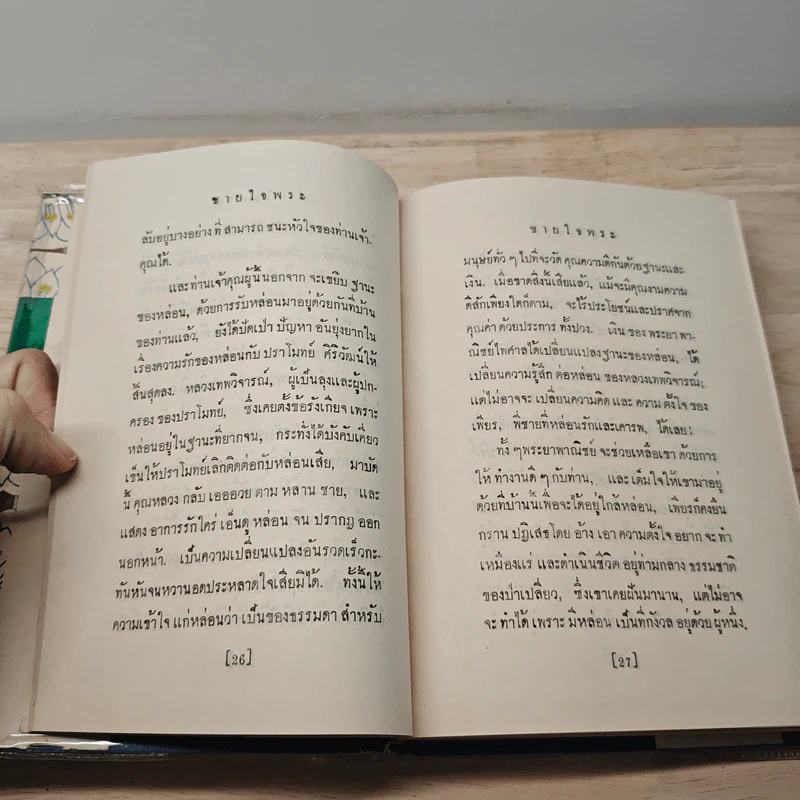 ชายใจพระ
ลับอยู่บางอย่าง ที่ สามารถ ชนะหัวใจของท่านเจ้า.
คุณได้.
และท่านเจ้าคุณผู้นี้นอกจาก จะเขยิบ ฐานะ
ของหล่อน, ด้วยการรับหล่อนมาอยู่ด้วยกันที่บ้าน
ของท่านแล้ว, ยังได้ปัดเป่า ปัญหา อันยุ่งยากใน
เรื่องความรักของหล่อนกับ ปราโมทย์ ศิริวัฒน์ให้
สิ้นสุดลง. หลวงเทพวิจารณ์, ผู้เป็นลุงและผู้ปก-
ครอง ของปราโมทย์, ซึ่งเคยตั้งข้อรังเกียจ เพราะ
หล่อนอยู่ในฐานะที่ยากจน, กระทั่งได้บังคับเคี่ยว
เข็นให้ปราโมทย์เลิกติดต่อกับหล่อนเสีย, มาบัด
นี้ คุณหลวง กลับ เอออวย ตาม หลาน ชาย, และ
แสดง อาการรักใคร่ เอ็นดู หล่อน จน ปรากฏ ออก
นอกหน้า. เป็นความเปลี่ยนแปลงอันรวดเร็วกะ-
ทันหันจนหวานอดประหลาดใจเสียมิได้. ทั้งนี้ให้
ความเข้าใจ แก่หล่อนว่า เป็นของธรรมดา สำหรับ
[26]
ชายใจพระ
มนุษย์ทั่ว ๆ ไปที่จะวัด คุณความดีกันด้วยฐานะและ
เงิน. เมื่อขาดสิ่งนี้เสียแล้ว, แม้จะมีคุณงามความ
ดีสักเพียงใดก็ตาม, จะไร้ประโยชน์และปราศจาก
คุณค่า ด้วยประการ ทั้งปวง. เงิน ของ พระยา พา-
ณิชย์ไพศาลได้เปลี่ยนแปลงฐานะของหล่อน, ได้
เปลี่ยนความรู้สึก ต่อหล่อน ของหลวงเทพวิจารณ์;
แต่ไม่อาจจะ เปลี่ยนความคิด และ ความ ตั้งใจ ของ
เพียร, พี่ชายที่หล่อนรักและเคารพ, ได้เลย!
ทั้ง ๆพระยาพาณิชย์ จะช่วยเหลือเขา ด้วยการ
ให้ ทำงานดี ๆ กับท่าน, และ เต็มใจให้เขามาอยู่
ด้วยที่บ้านนี้เพื่อจะได้อยู่ใกล้หล่อน, เพียรก็คงยืน
กราน ปฏิเสธโดย อ้าง เอา ความตั้งใจ อยาก จะ ทำ
เหมืองแร่ และดำเนินชีวิต อยู่ท่ามกลาง ธรรมชาติ
ของป่าเปลี่ยว, ซึ่งเขาเคยฝันมานาน, แต่ไม่อาจ
จะ ทำได้ เพราะ มีหล่อน เป็นที่กังวล อยู่ด้วย ผู้หนึ่ง.
[27]